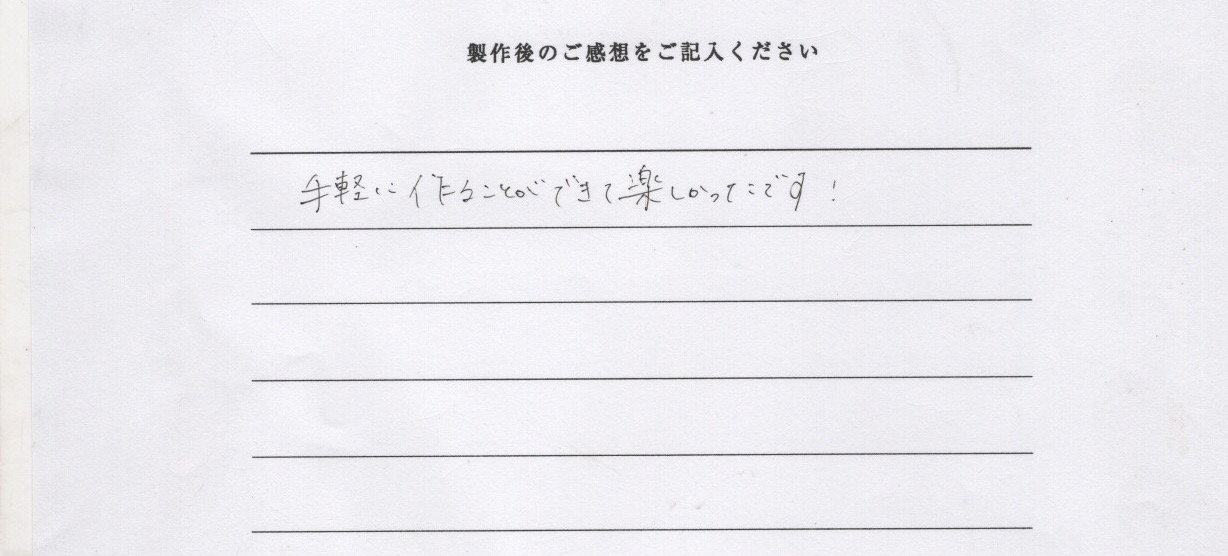 製作後のご感想をご記入ください
手軽に作ることができて楽しかったです!